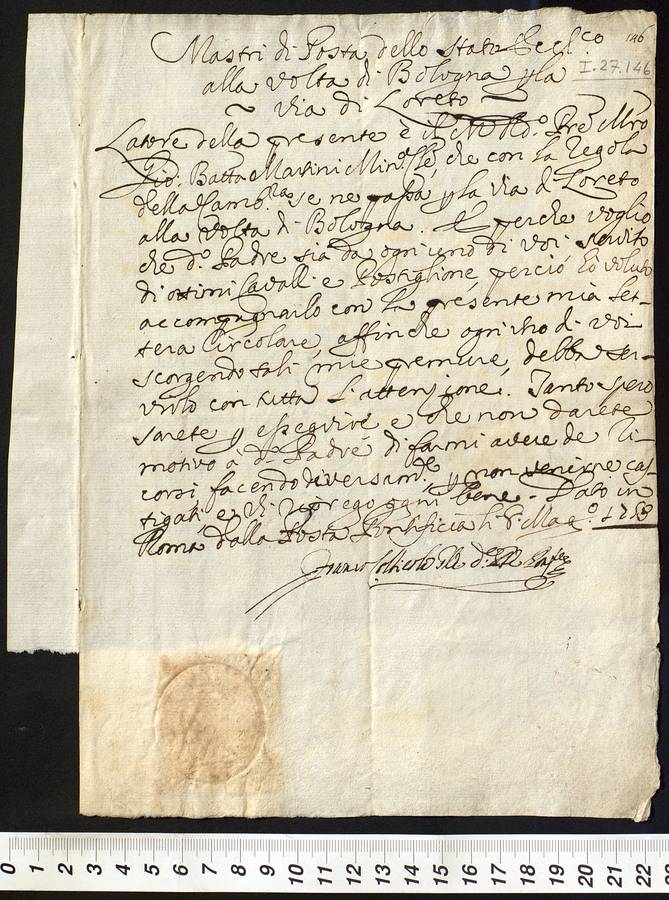 146
Mastri di Posta dello Stato Eccl.co
I.27.146
alla volta di Bologna p la
via di Loreto
Latore della presente è il M. Rdo. Pre Mro
Gio: Batta Martini Min: che con la Regola
della Cam.ra se ne passa p la via di Loreto
alla volta di Bologna. E perche voglio
che d.o Padre sia da ogni uno di voi servito
di ottimi Cavalli e Postiglione, perciò hò voluto
accompagnarlo con la presente mia let-
tera Circolare, affinche ogn'uno di voi
scorgendo tali mie premure, debba ser-
virlo con tutta l'attenzione. Tanto spero
sarete p esseguire e che non darete
motivo à d.o Padre di farmi avere de Ri-
corsi facendo diversam.te p non venirne cas-
tigati e vi prego ogni bene. Dato in
Roma dalla Posta Pontificia li 8. Mag.o 1753
0 1 2 3 4 5 6 7 8 9 10 11 12 13 14 15 16 17 18 19 20 21 22